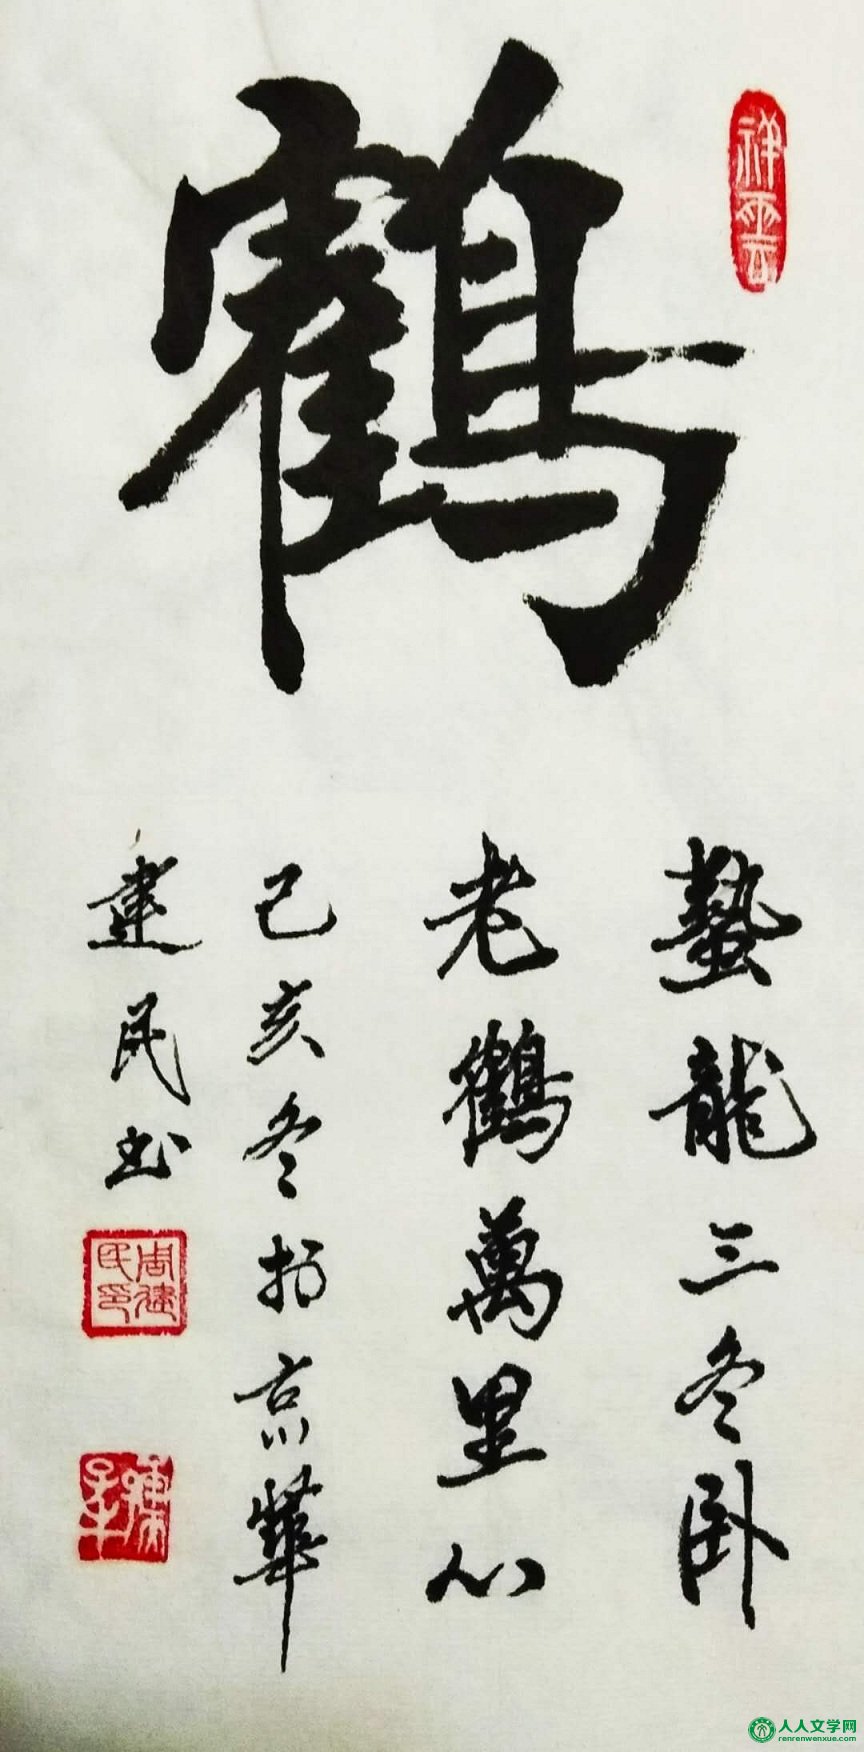 鶴
祥雲
蟄龍三冬卧
老鶴萬里心
己亥冬於京華
建民书
周建民印
人人文学网
renrenwenxue.com